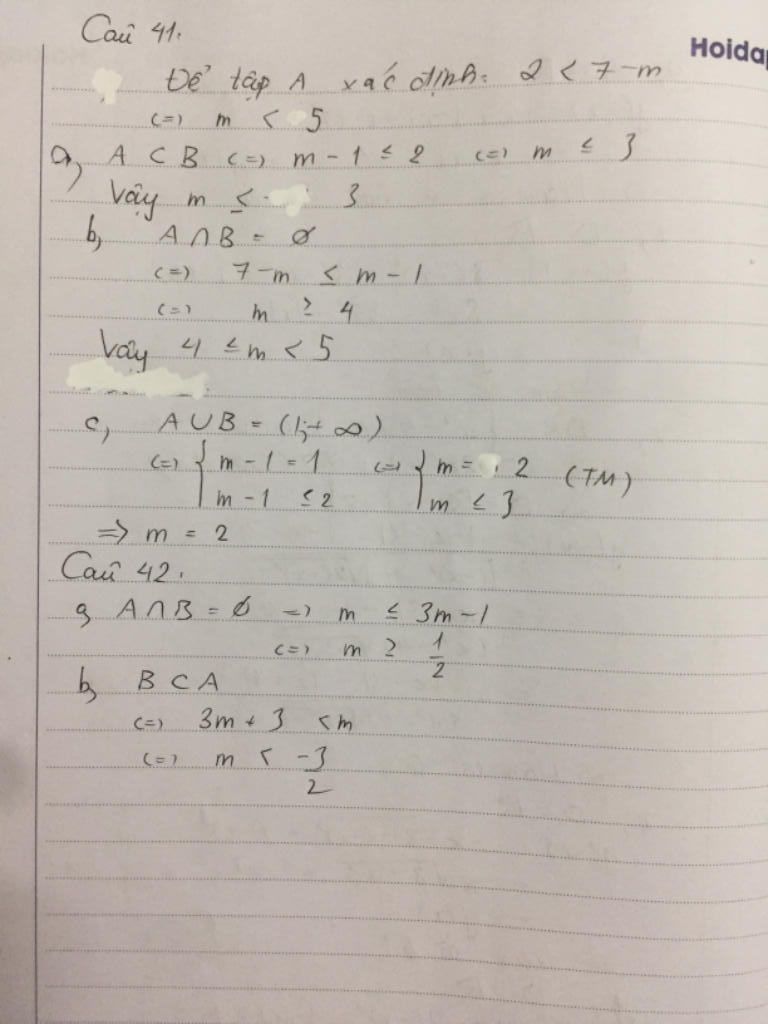 Câu 41.
Hoidap
Để tập A xác định: 2 < 7-m
(=) m < 5
a, A ⊂ B (=) m - 1 ≤ 2 (=) m ≤ 3
Vậy m ≤ 3
b, A ∩ B = ∅
(=) 7-m ≤ m - 1
(=) m ≥ 4
Vậy 4 ≤ m < 5
c, A ∪ B = (1; + ∞)
(=) { m - 1 = 1 (=) { m = 2 (TM)
m - 1 ≤ 2 m ≤ 3
=> m = 2
Câu 42.
a, A ∩ B = ∅ => m ≤ 3m - 1
(=) m ≥ 1/2
b, B ⊂ A
(=) 3m + 3 < m
(=) m < -3/2